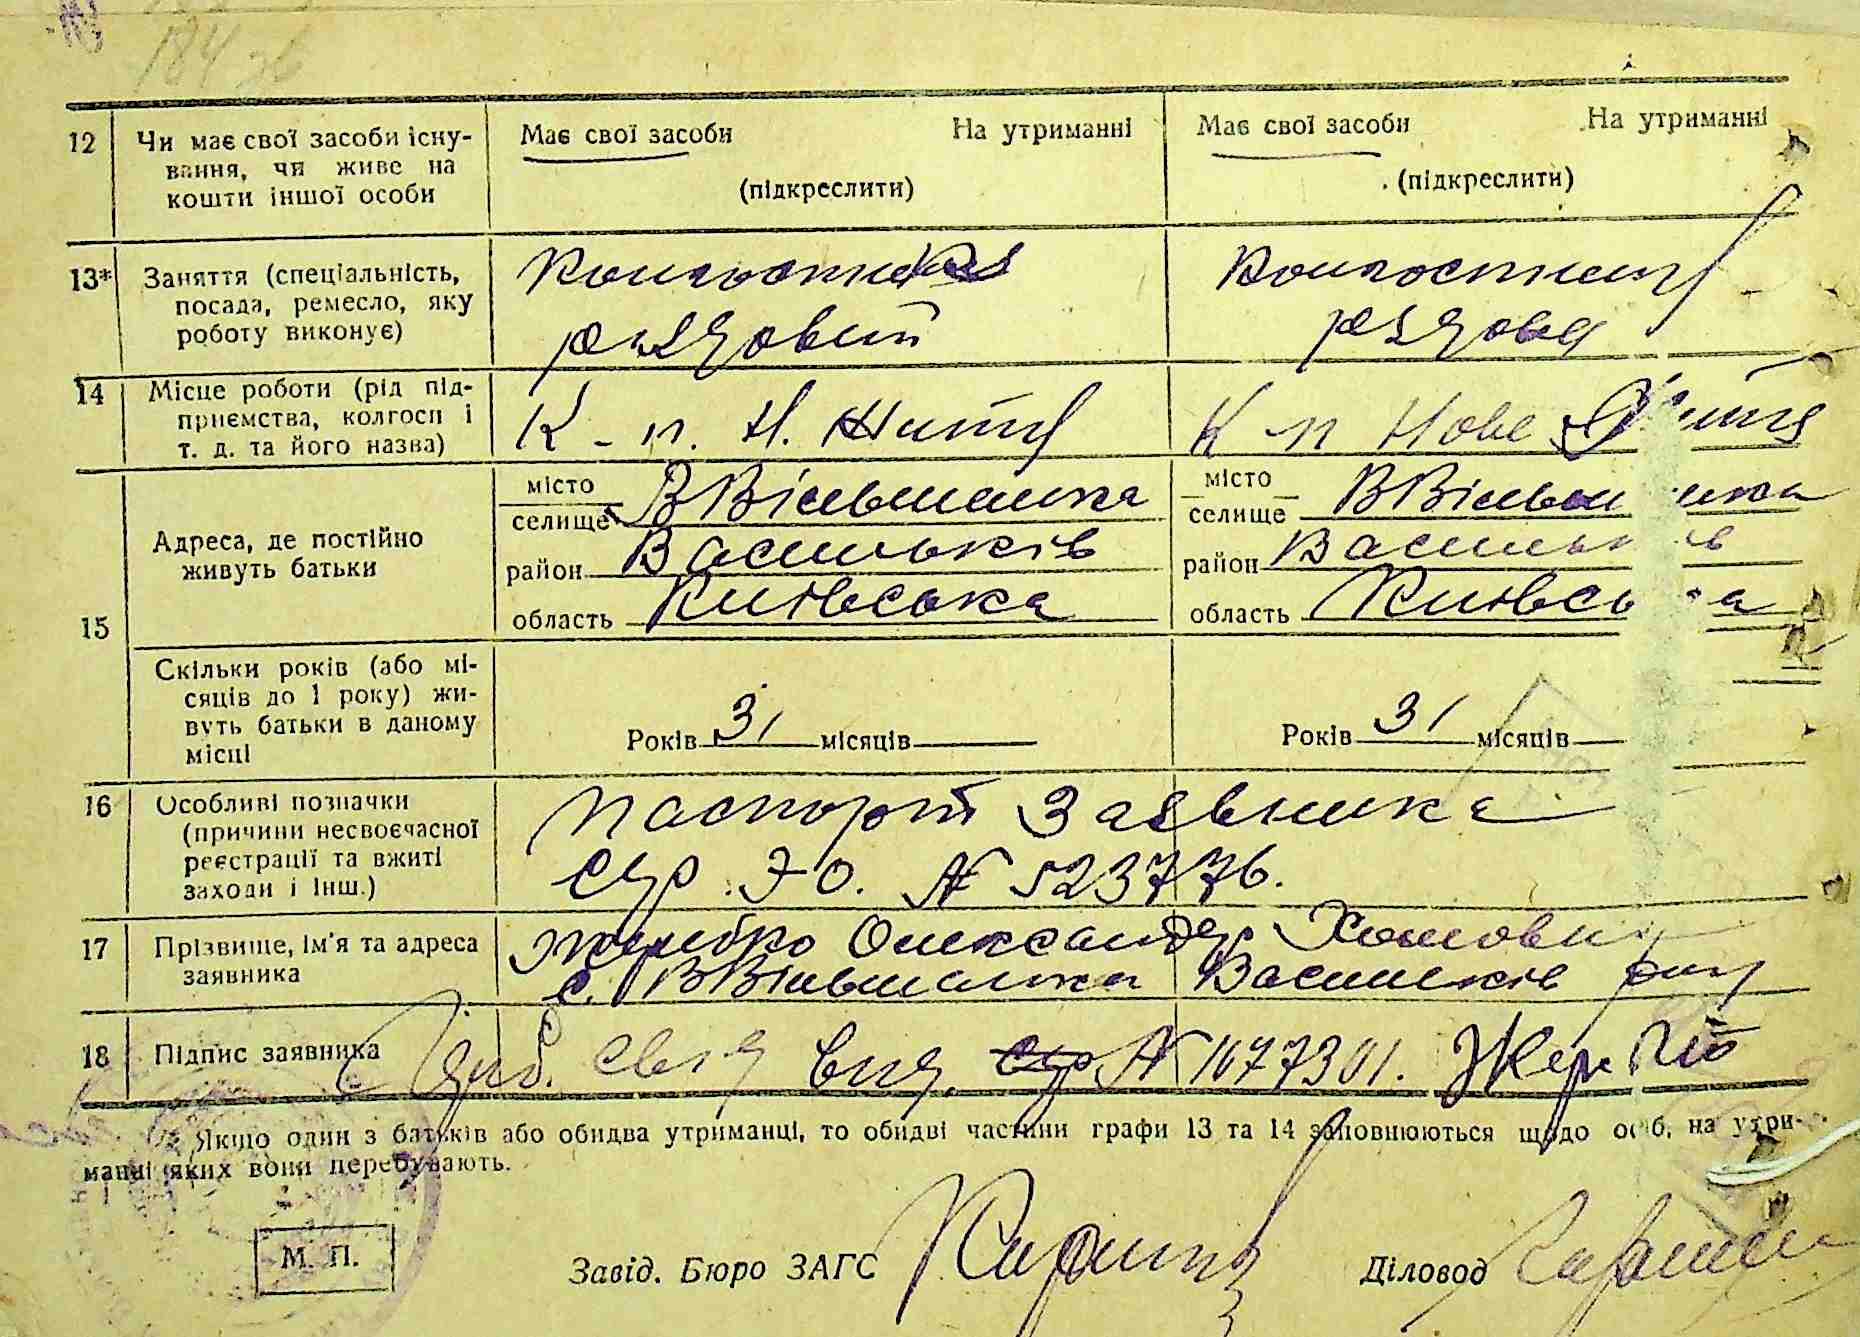 184 зв
12 Чи має свої засоби існу-
вання, чи живе на
кошти іншої особи
Має свої засоби На утриманні
(підкреслити)
Має свої засоби На утриманні
(підкреслити)
13* Заняття (спеціальність,
посада, ремесло, яку
роботу виконує)
Колгоспник
рядовий
Колгоспниця
рядова
14 Місце роботи (рід під-
приємства, колгосп і
т. д. та його назва)
К-п. Н. Життя
К-п Нове Життя
15 Адреса, де постійно
живуть батьки
місто
селище ВВільшанка
район Васильків
область Київська
місто
селище ВВільшанка
район Васильків
область Київська
Скільки років (або мі-
сяців до 1 року) жи-
вуть батьки в даному
місці
Років 31 місяців
Років 31 місяців
16 Особливі позначки
(причини несвоєчасної
реєстрації та вжиті
заходи і інш.)
Паспорт Заявника
Сер. ЭО. № 523776.
17 Прізвище, ім'я та адреса
заявника
Олександр Хомович
с. ВВільшанка Васильків р-ну
18 Підпис заявника
вид. № 1077301.
* Якщо один з батьків або обидва утриманці, то обидві частини графи 13 та 14 заповнюються щодо осіб, на утри-
манні яких вони перебувають.
М. П.
Завід. Бюро ЗАГС
Діловод